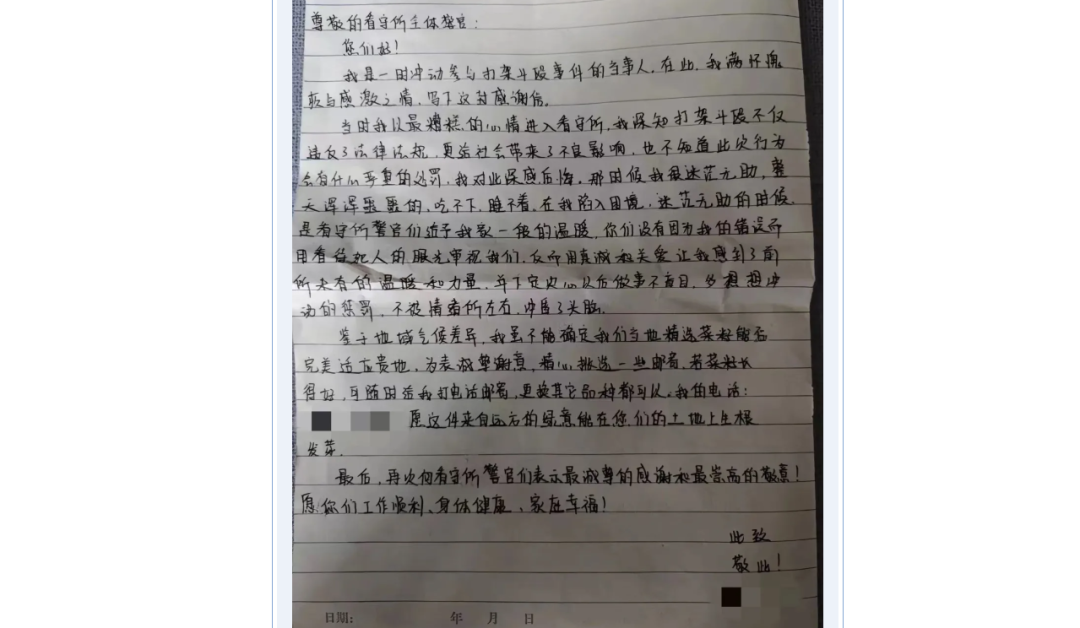 尊敬的看守所全体警官：
您们好！
我是一时冲动参与打架斗殴事件的当事人，在此，我满怀愧
疚与感激之情，写下这封感谢信。
当时我以最糟糕的心情进入看守所，我深知打架斗殴不仅
违反了法律法规，更给社会带来了不良影响，也不知道此次行为
会有什么严重的处罚，我对此深感后悔，那时候我很迷茫无助，整
天浑浑噩噩的，吃不下，睡不着，在我陷入困境，迷茫无助的时候，
是看守所警官们给予我家一般的温暖，你们没有因为我的错误而
用看待犯人的眼光审视我们，反而用真诚和关爱让我感到了前
所未有的温暖和力量，并下定决心以后做事不盲目，多想想冲
动的惩罚，不被情绪所左右，冲昏了头脑。
鉴于地域气候差异，我虽不能确定我们当地精选菜籽能否
完美适应贵地，为表诚挚谢意，精心挑选一些邮寄，若菜籽长
得好，可随时给我打电话邮寄，更换其它品种都可以，我的电话：
愿这件来自远方的绿意能在您们的土地上生根
发芽。
最后，再次向看守所警官们表示最诚挚的感谢和最崇高的敬意！
愿你们工作顺利、身体健康、家庭幸福！
此致
敬礼！
日期： 年 月 日